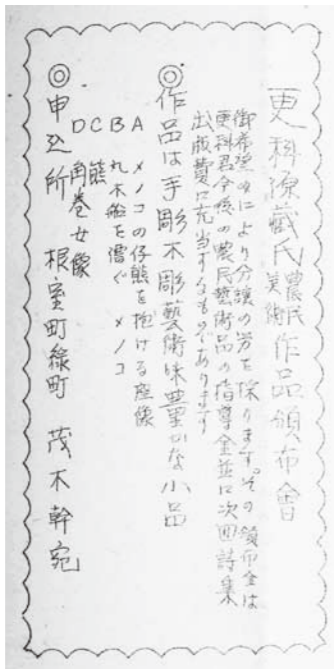 更科源藏氏農民美術作品頒布會
御希望のにより分讓の労を採ります。その頒布金は
更科君今後の農民藝術品の指導金並に次回詩集
出版費に充当するものであります
◎作品は手彫木彫藝術味豊かな小品
A メノコの仔熊を抱ける座像
B 丸木船を漕ぐ メノコ
C 熊
D 角巻女像
◎申込所 根室町緑町 茂木幹宛